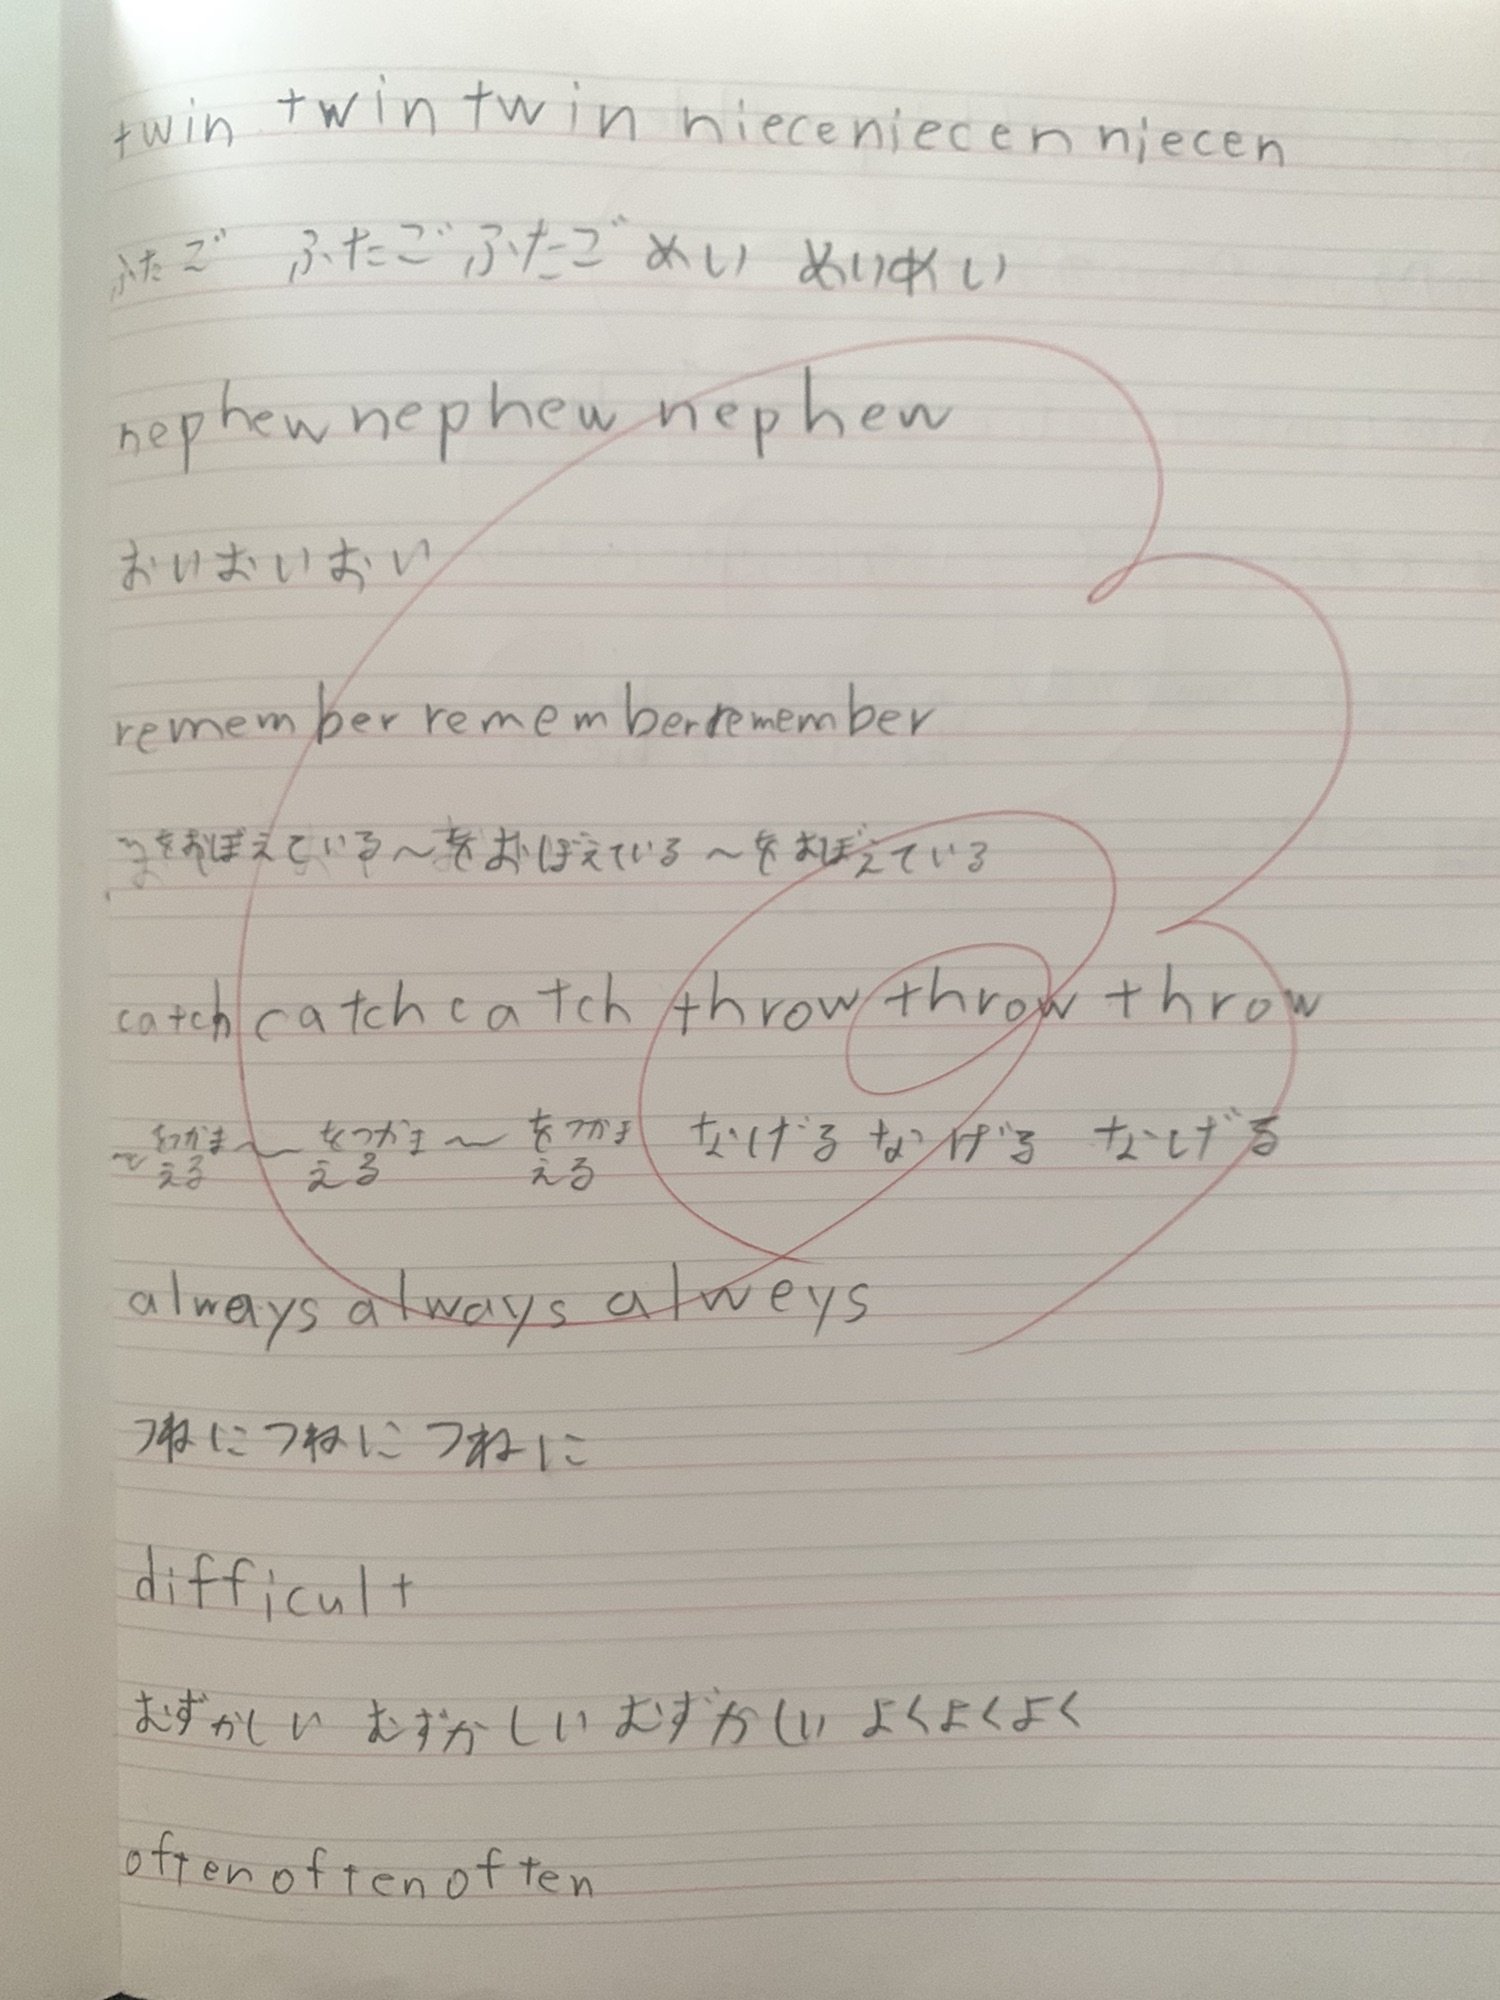 twin twin twin niece niecen niecen
ふたご ふたご ふたご めい めい めい
nephew nephew nephew
おい おい おい
remember remember remember
〜をおぼえている 〜をおぼえている 〜をおぼえている
catch catch catch throw throw throw
〜をつかまえる 〜をつかまえる 〜をつかまえる なげる なげる なげる
always always alweys
つねに つねに つねに
difficult
むずかしい むずかしい むずかしい よく よく よく
often often often